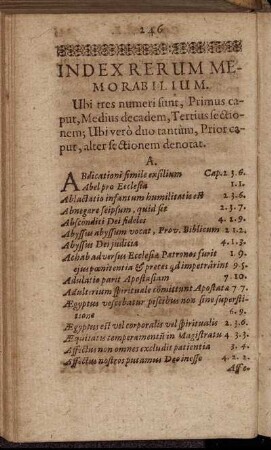 246
INDEX RERUM ME-
MORABILIUM.
Ubi tres numeri sunt, Primus ca-
put, Medius decadem, Tertius sectio-
nem; Ubi verò duo tantùm, Prior ca-
put, alter sectionem denotat.
A.
ABdicationi simile exsilium Cap. 2 3. 6.
Abel pro Ecclesia 1. 1.
Ablactatio infantum humilitatis est 2. 3. 6.
Abnegare seipsum, quid sit 2. 3. 7.
Absconditi Dei fideles 4. 2. 9.
Abyssus abyssum vocat, Prov. Biblicum 2 1. 2.
Abyssus Dei judicia 4. 1. 3.
Achab adversus Ecclesiæ Patronos furit 1 9.
ejus pœnitentia & preces quid impetrârint 9 5.
Adulatio parit Apostasiam 7. 10.
Adulterium spirituale comittunt Apostatæ 7 7.
Ægyptus vescebatur piscibus non sine supersti-
tione 6. 9.
Ægyptus est vel corporalis vel spiritualis 2. 3. 6.
Æquitatis temperamentũ in Magistratu 4 3. 3.
Affectus non omnes excludit patientia 3. 4.
Affectus nostros putamus Deo inesse 4. 2. 2.
Affe-